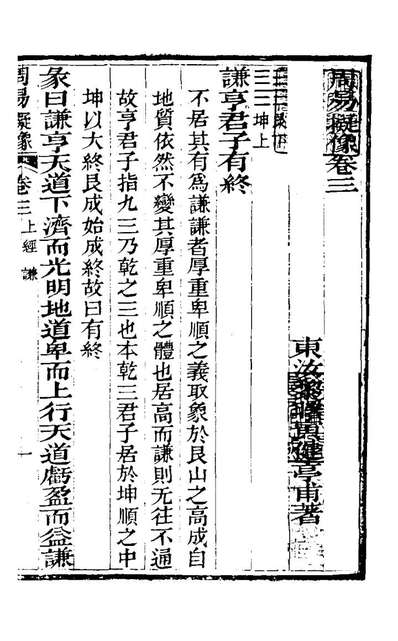 周易擬像卷三
東汝黎曙寅健亭甫著
坤上
謙亨君子有終
不居其有為謙謙者厚重卑順之義取象於艮山之高成自
地質依然不變其厚重卑順之體也居高而謙則无往不通
故亨君子指九三乃乾之三也本乾三君子居於坤順之中
坤以大終艮成始成終故曰有終
彖曰謙亨天道下濟而光明地道卑而上行天道虧盈而益謙
周易擬像 卷三 上經 謙 一